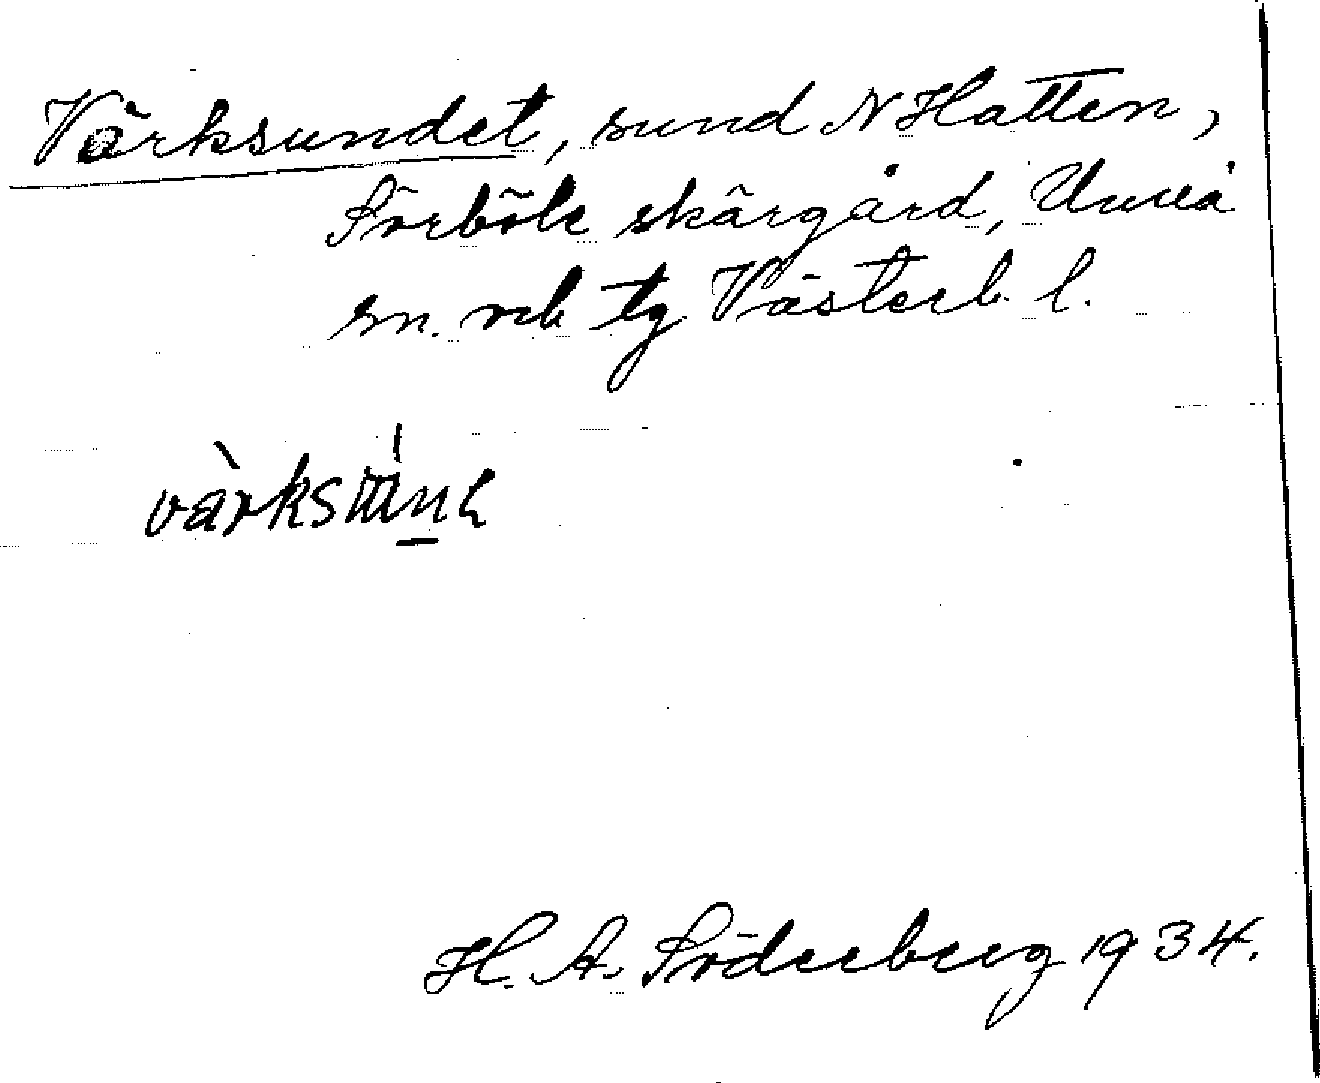 Värksundet, sund N Hatten,
Sörböle skärgård, Umeå
sn. och tg Västerb. l.
H. A. Söderberg 1934.